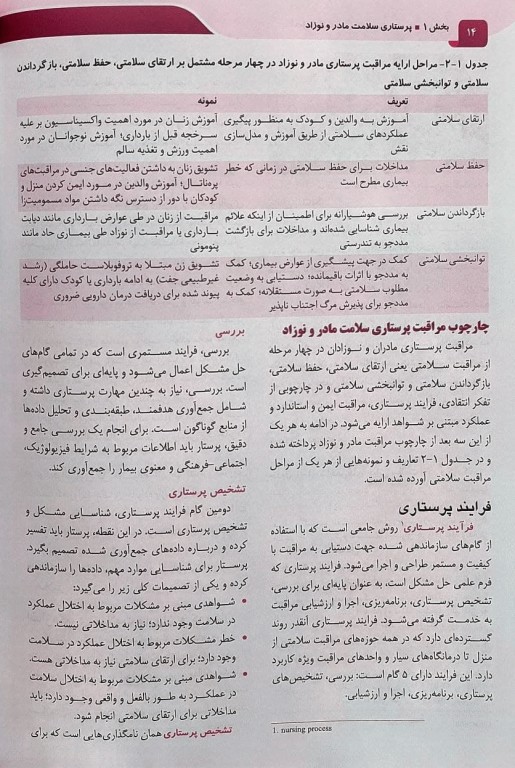 ۱۴
بخش ۱ ▪ پرستاری سلامت مادر و نوزاد
جدول ۱-۲- مراحل ارایه مراقبت پرستاری مادر و نوزاد در چهار مرحله مشتمل بر ارتقای سلامتی، حفظ سلامتی، بازگرداندن
سلامتی و توانبخشی سلامتی
تعریف
نمونه
ارتقای سلامتی
آموزش به والدین و کودک به منظور پیگیری
عملکردهای سلامتی از طریق آموزش و مدل‌سازی
نقش
آموزش زنان در مورد اهمیت واکسیناسیون بر علیه
سرخجه قبل از بارداری؛ آموزش نوجوانان در مورد
اهمیت ورزش و تغذیه سالم
حفظ سلامتی
مداخلات برای حفظ سلامتی در زمانی که خطر
بیماری مطرح است
تشویق زنان به داشتن فعالیت‌های جنسی در مراقبت‌های
پره‌ناتال؛ آموزش والدین در مورد ایمن کردن منزل و
کودکان با دور از دسترس نگه داشتن مواد مسمومیت‌زا
بازگرداندن سلامتی
بررسی هوشیارانه برای اطمینان از اینکه علائم
بیماری شناسایی شده‌اند و مداخلات برای بازگشت
مددجو به تندرستی
مراقبت از زنان در طی عوارض بارداری مانند دیابت
بارداری یا مراقبت از نوزاد طی بیماری حاد مانند
پنومونی
توانبخشی سلامتی
کمک در جهت پیشگیری از عوارض بیماری؛ کمک
به مددجو با اثرات باقیمانده؛ دستیابی به وضعیت
مطلوب سلامتی به صورت مستقلانه؛ کمک به
مددجو برای پذیرش مرگ اجتناب ناپذیر
تشویق زن مبتلا به تروفوبلاست حاملگی (رشد
غیرطبیعی جفت) به ادامه بارداری یا کودک دارای کلیه
پیوند شده برای دریافت درمان دارویی ضروری
چارچوب مراقبت پرستاری سلامت مادر و نوزاد
مراقبت پرستاری مادران و نوزادان در چهار مرحله
از مراقبت سلامتی یعنی ارتقای سلامتی، حفظ سلامتی،
بازگرداندن سلامتی و توانبخشی سلامتی و در چارچوبی از
تفکر انتقادی، فرایند پرستاری، مراقبت ایمن و استاندارد و
عملکرد مبتنی بر شواهد ارایه می‌شود. در ادامه به هر یک
از این سه بعد از چارچوب مراقبت مادر و نوزاد پرداخته شده
و در جدول ۱-۲ تعاریف و نمونه‌هایی از هر یک از مراحل
مراقبت سلامتی آورده شده است.
فرایند پرستاری
فرآیند پرستاری۱ روش جامعی است که با استفاده
از گام‌های سازماندهی شده جهت دستیابی به مراقبت با
کیفیت و مستمر طراحی و اجرا می‌شود. فرایند پرستاری که
فرم علمی حل مشکل است، به عنوان پایه‌ای برای بررسی،
تشخیص پرستاری، برنامه‌ریزی، اجرا و ارزشیابی مراقبت
به خدمت گرفته می‌شود. فرایند پرستاری آنقدر روند
گسترده‌ای دارد که در همه حوزه‌های مراقبت سلامتی از
منزل تا درمانگاه‌های سیار و واحدهای مراقبت ویژه کاربرد
دارد. این فرایند دارای ۵ گام است: بررسی، تشخیص‌های
پرستاری، برنامه‌ریزی، اجرا و ارزشیابی.
بررسی
بررسی، فرایند مستمری است که در تمامی گام‌های
حل مشکل اعمال می‌شود و پایه‌ای برای تصمیم‌گیری
است. بررسی، نیاز به چندین مهارت پرستاری داشته و
شامل جمع‌آوری هدفمند، طبقه‌بندی و تحلیل داده‌ها
از منابع گوناگون است. برای انجام یک بررسی جامع و
دقیق، پرستار باید اطلاعات مربوط به شرایط فیزیولوژیک،
اجتماعی-فرهنگی و معنوی بیمار را جمع‌آوری کند.
تشخیص پرستاری
دومین گام فرایند پرستاری، شناسایی مشکل و
تشخیص پرستاری است. در این نقطه، پرستار باید تفسیر
کرده و درباره داده‌های جمع‌آوری شده تصمیم بگیرد.
پرستار برای شناسایی موارد مهم، داده‌ها را سازماندهی
کرده و یکی از تصمیمات کلی زیر را می‌گیرد:
• شواهدی مبنی بر مشکلات مربوط به اختلال عملکرد
در سلامت وجود ندارد؛ نیاز به مداخلاتی نیست.
• خطر مشکلات مربوط به اختلال عملکرد در سلامت
وجود دارد؛ برای ارتقای سلامتی نیاز به مداخلاتی هست.
• شواهدی مبنی بر مشکلات مربوط به اختلال سلامت
در عملکرد به طور بالفعل و واقعی وجود دارد؛ باید
مداخلاتی برای ارتقای سلامتی انجام شود.
تشخیص پرستاری همان نامگذاری‌هایی است که برای
1. nursing process